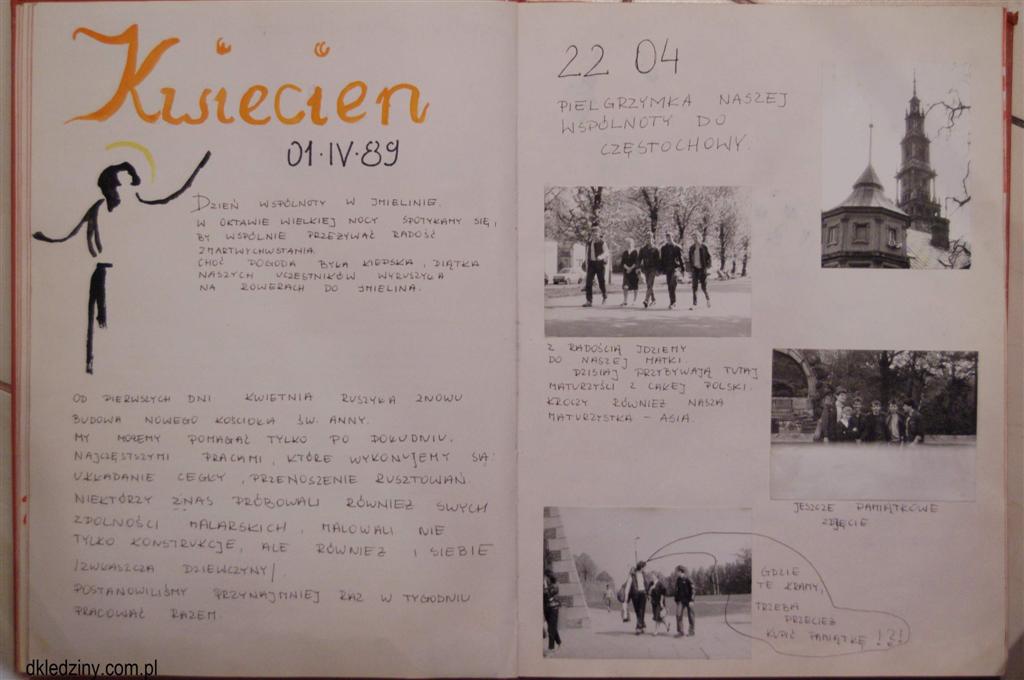 Kwiecień
01·IV·89
DZIEŃ WSPÓLNOTY W IMIELINIE.
W OKTAWIE WIELKIEJ NOCY SPOTYKAMY SIĘ,
BY WSPÓLNIE PRZEŻYWAĆ RADOŚĆ
ZMARTWYCHWSTANIA.
CHOĆ POGODA BYŁA KIEPSKA, PIĄTKA
NASZYCH UCZESTNIKÓW WYRUSZYŁA
NA ROWERACH DO IMIELINA.
OD PIERWSZYCH DNI KWIETNIA RUSZYŁA ZNOWU
BUDOWA NOWEGO KOŚCIOŁA ŚW. ANNY.
MY MOŻEMY POMAGAĆ TYLKO PO POŁUDNIU.
NAJCZĘSTSZYMI PRACAMI, KTÓRE WYKONUJEMY SĄ:
UKŁADANIE CEGŁY, PRZENOSZENIE RUSZTOWAŃ.
NIEKTÓRZY Z NAS PRÓBOWALI RÓWNIEŻ SWYCH
ZDOLNOŚCI MALARSKICH, MALOWALI NIE
TYLKO KONSTRUKCJE, ALE RÓWNIEŻ I SIEBIE
/ZWŁASZCZA DZIEWCZYNY/
POSTANOWILIŚMY PRZYNAJMNIEJ RAZ W TYGODNIU
PRACOWAĆ RAZEM.
22 04
PIELGRZYMKA NASZEJ
WSPÓLNOTY DO
CZĘSTOCHOWY.
Z RADOŚCIĄ IDZIEMY
DO NASZEJ MATKI.
DZISIAJ PRZYBYWAJĄ TUTAJ
MATURZYŚCI Z CAŁEJ POLSKI.
KROCZY RÓWNIEŻ NASZA
MATURZYSTKA – ASIA.
JESZCZE PAMIĄTKOWE
ZDJĘCIE
GDZIE
TE KRAMY,
TRZEBA
PRZECIEŻ
KUPIĆ PAMIĄTKĘ !?!
dkledziny.com.pl